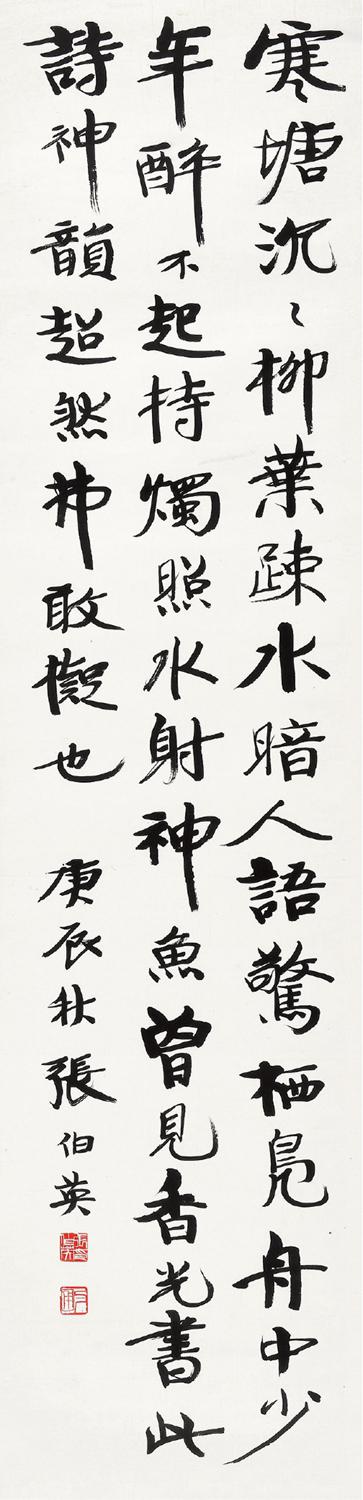 寒塘沉〻柳葉疎水暗人語驚栖鳧舟中少
年醉不起持燭照水射神魚曾見香光書此
詩神韻超然弗敢擬也
庚辰秋張伯英